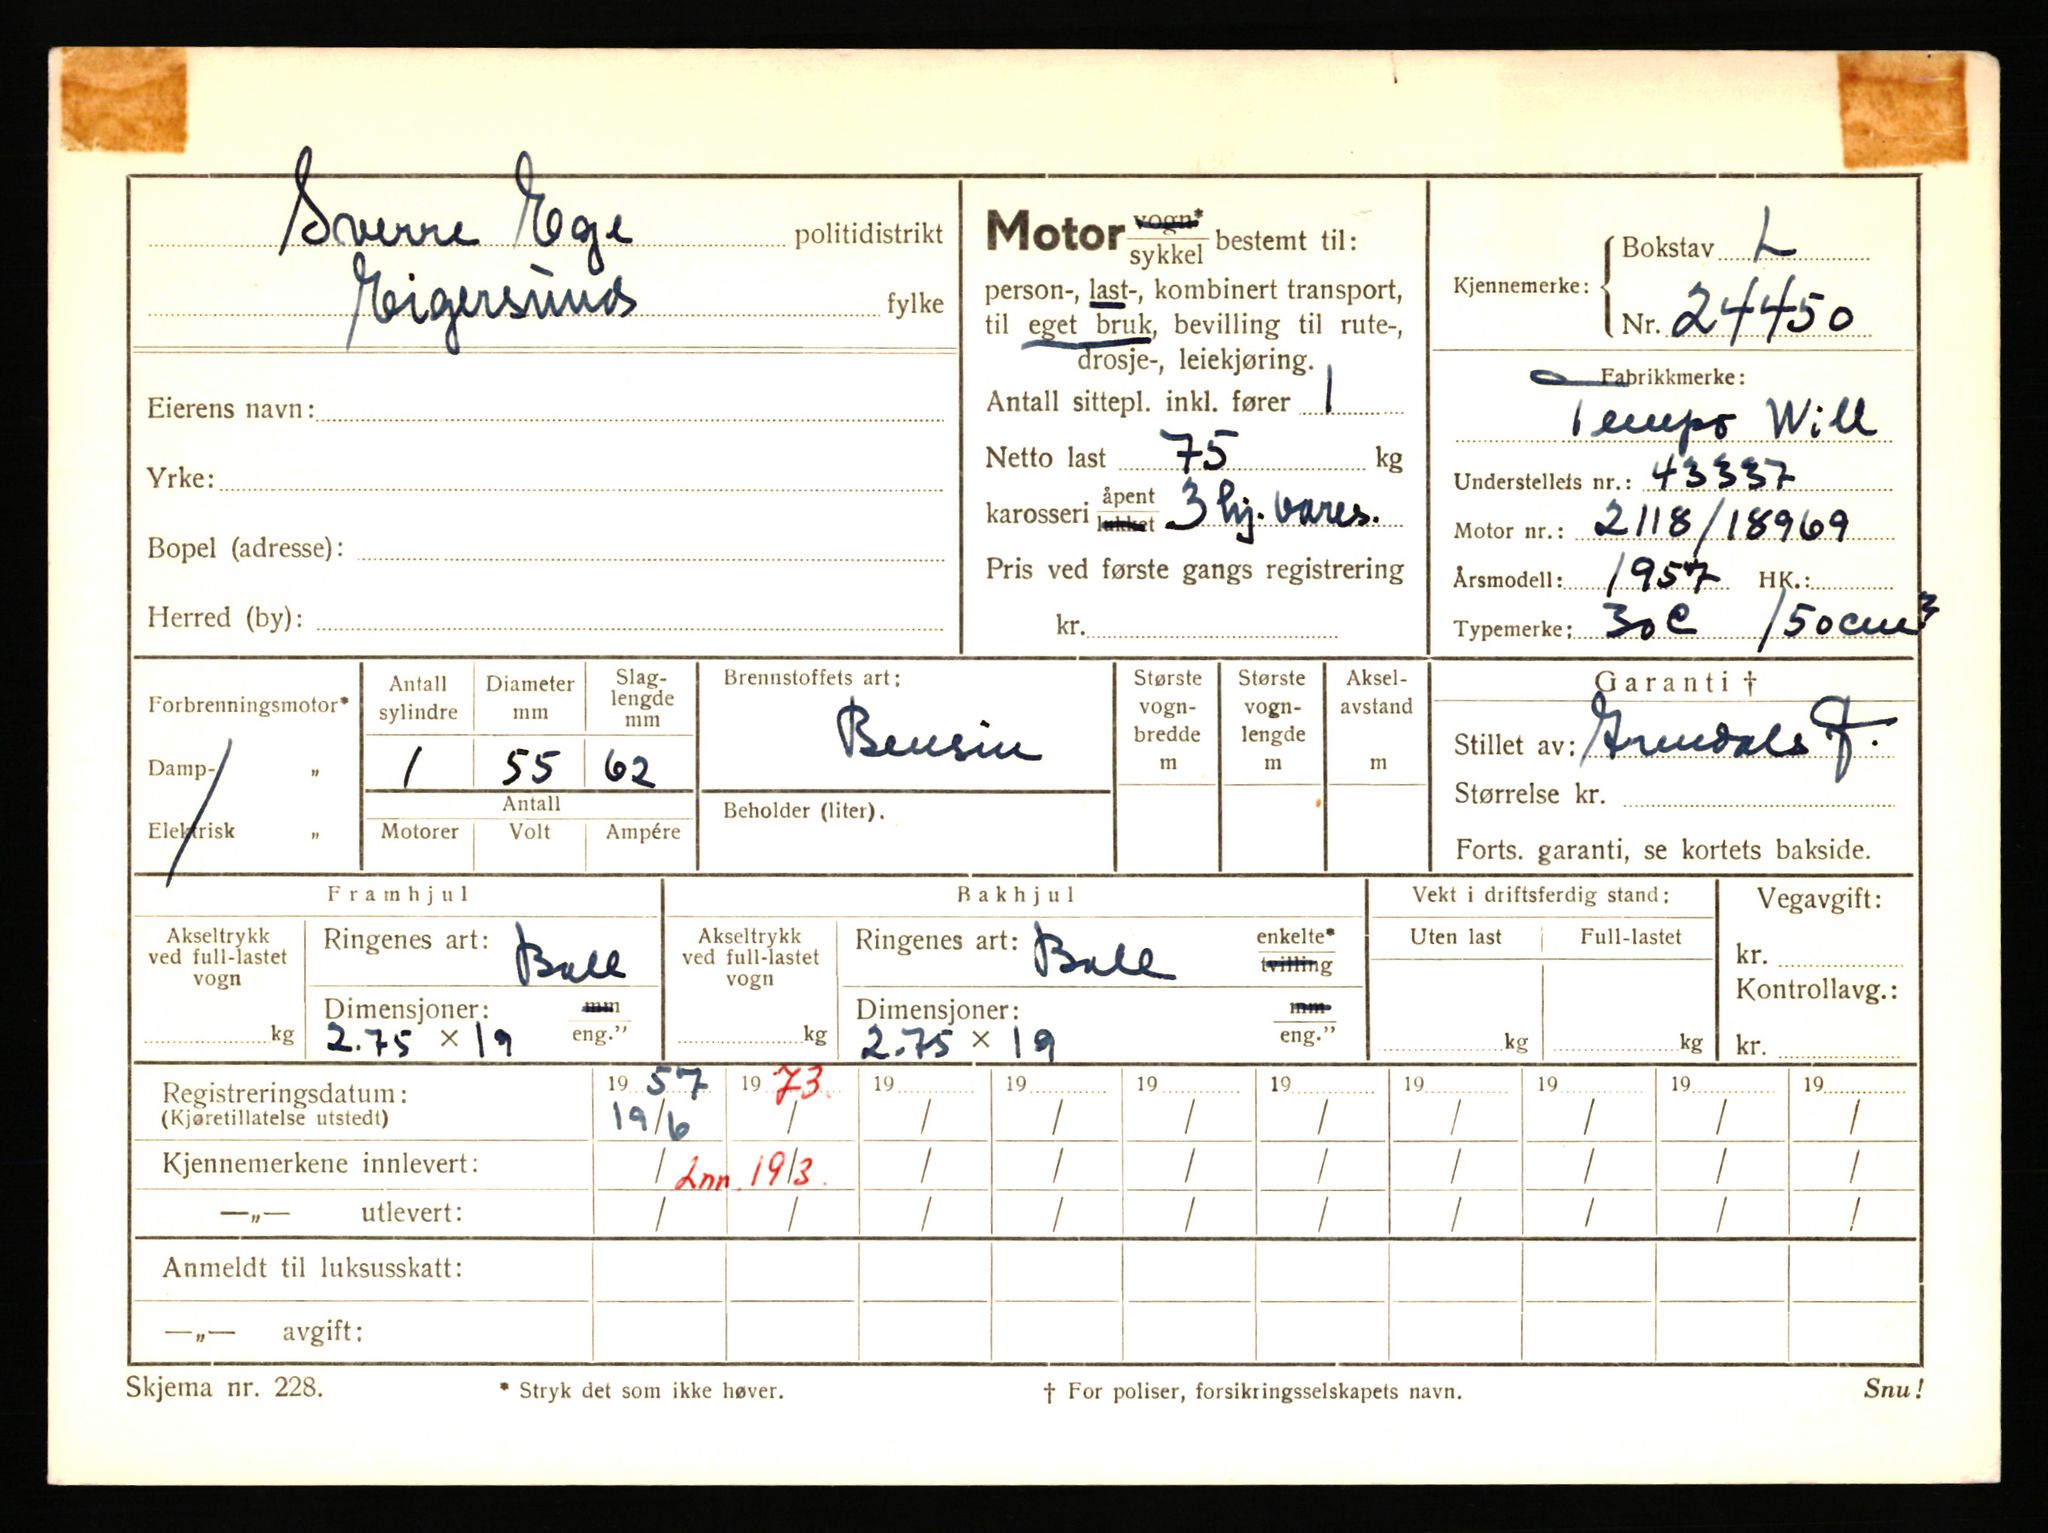 Sverre Ege politidistrikt
Eigersund fylke
Eierens navn:
Yrke:
Bopel (adresse):
Herred (by):
Motor vogn* / sykkel bestemt til:
person-, last-, kombinert transport,
til eget bruk, bevilling til rute-,
drosje-, leiekjøring.
Antall sittepl. inkl. fører 1
Netto last 75 kg
karosseri åpent / lukket 3 hj. vares.
Pris ved første gangs registrering
kr.
Kjennemerke: Bokstav L
Nr. 24450
Fabrikkmerke:
Tempo Will
Understellets nr.: 43337
Motor nr.: 2118/18969
Årsmodell: 1957 HK.:
Typemerke: 30 C 150 cm³
Forbrenningsmotor*
Damp- „
Elektrisk „
Antall sylindre Diameter mm Slag-lengde mm
1 55 62
Antall
Motorer Volt Ampére
Brennstoffets art:
Bensin
Beholder (liter).
Største vogn-bredde m
Største vogn-lengde m
Aksel-avstand m
Garanti †
Stillet av: F.
Størrelse kr.
Forts. garanti, se kortets bakside.
Framhjul
Akseltrykk ved full-lastet vogn kg
Ringenes art: Ball
Dimensjoner: mm / eng."
2.75 × 19
Bakhjul
Akseltrykk ved full-lastet vogn kg
Ringenes art: Ball enkelte* / tvilling
Dimensjoner: mm / eng."
2.75 × 19
Vekt i driftsferdig stand:
Uten last Full-lastet
kg kg
Vegavgift:
kr.
Kontrollavg.:
kr.
Registreringsdatum: 19 57 19 73 19 19 19 19 19 19 19 19
(Kjøretillatelse utstedt) 19/6 / / / / / / / / /
Kjennemerkene innlevert: / Inn. 19/3. / / / / / / / /
—„— utlevert: / / / / / / / / / /
Anmeldt til luksusskatt:
—„— avgift:
Skjema nr. 228. * Stryk det som ikke høver. † For poliser, forsikringsselskapets navn. Snu!